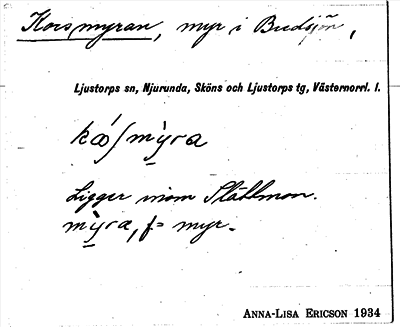 Korsmyran, myr i Bredsjön,
Ljustorps sn, Njurunda, Sköns och Ljustorps tg, Västernorrl. l.
mỳra
Ligger inom Slättmon.
mỳra, f = myr.
ANNA-LISA ERICSON 1934